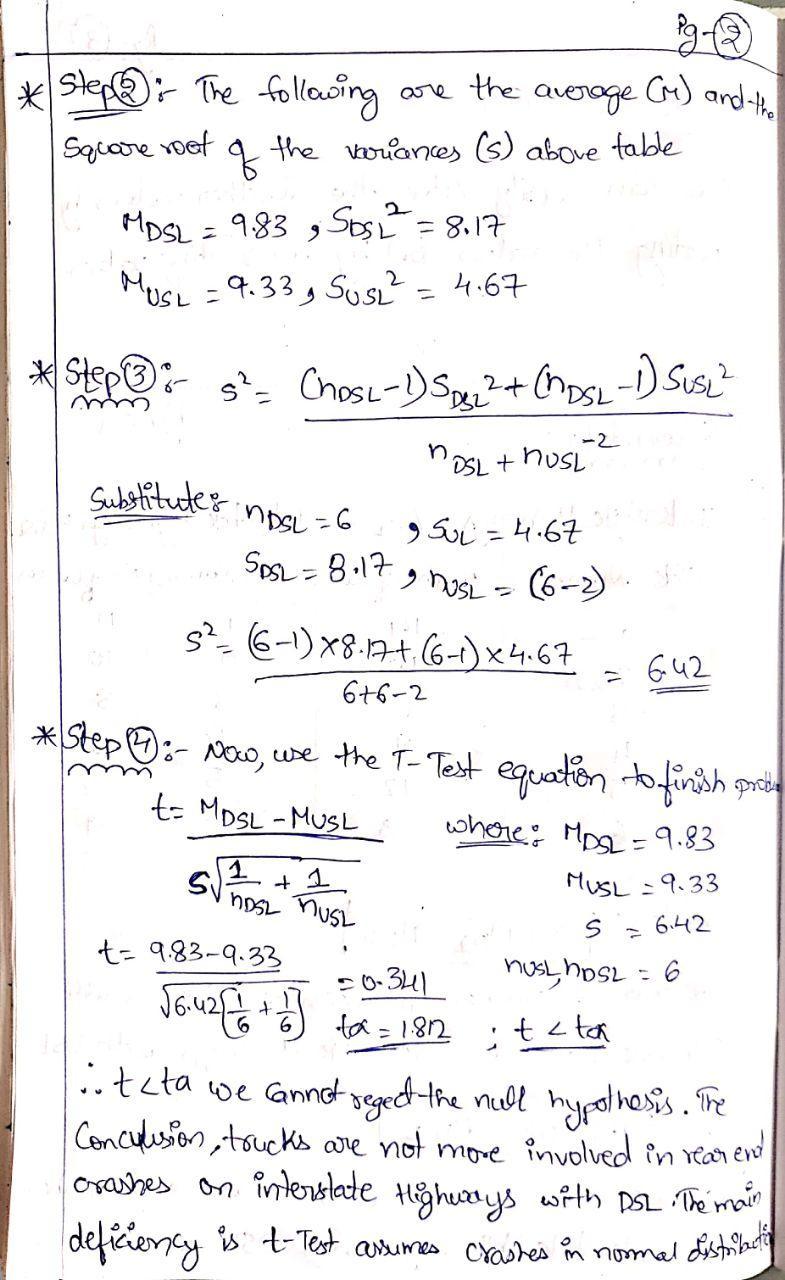 Pg-②
* Step②:- The following are the average (M) and the
Square root of the variances (S) above table
MDSL = 9.83 , SDSL² = 8.17
MUSL = 9.33 , SUSL² = 4.67
* Step③:- s² = (nDSL-1) SDSL² + (nDSL-1) SUSL²
nDSL + nUSL -2
Substitute:- nDSL = 6 , SUL = 4.67
SDSL = 8.17 , nUSL = (6-2)
s² = (6-1)×8.17+(6-1)×4.67 = 6.42
6+6-2
* Step④:- Now, use the T-Test equation to finish
t = MDSL - MUSL where: MDSL = 9.83
S√1/nDSL + 1/nUSL MUSL = 9.33
S = 6.42
t = 9.83-9.33 = 0.341 nUSL, nDSL = 6
√6.42[1/6 + 1/6] tα = 1.812 ; t < tα
∴ t<tα we cannot reged the null hypothesis. The
Conculusion, trucks are not more involved in rear end
crashes on interstate Highways with DSL. The main
deficiency is t-Test assumes crashes in normal distribution